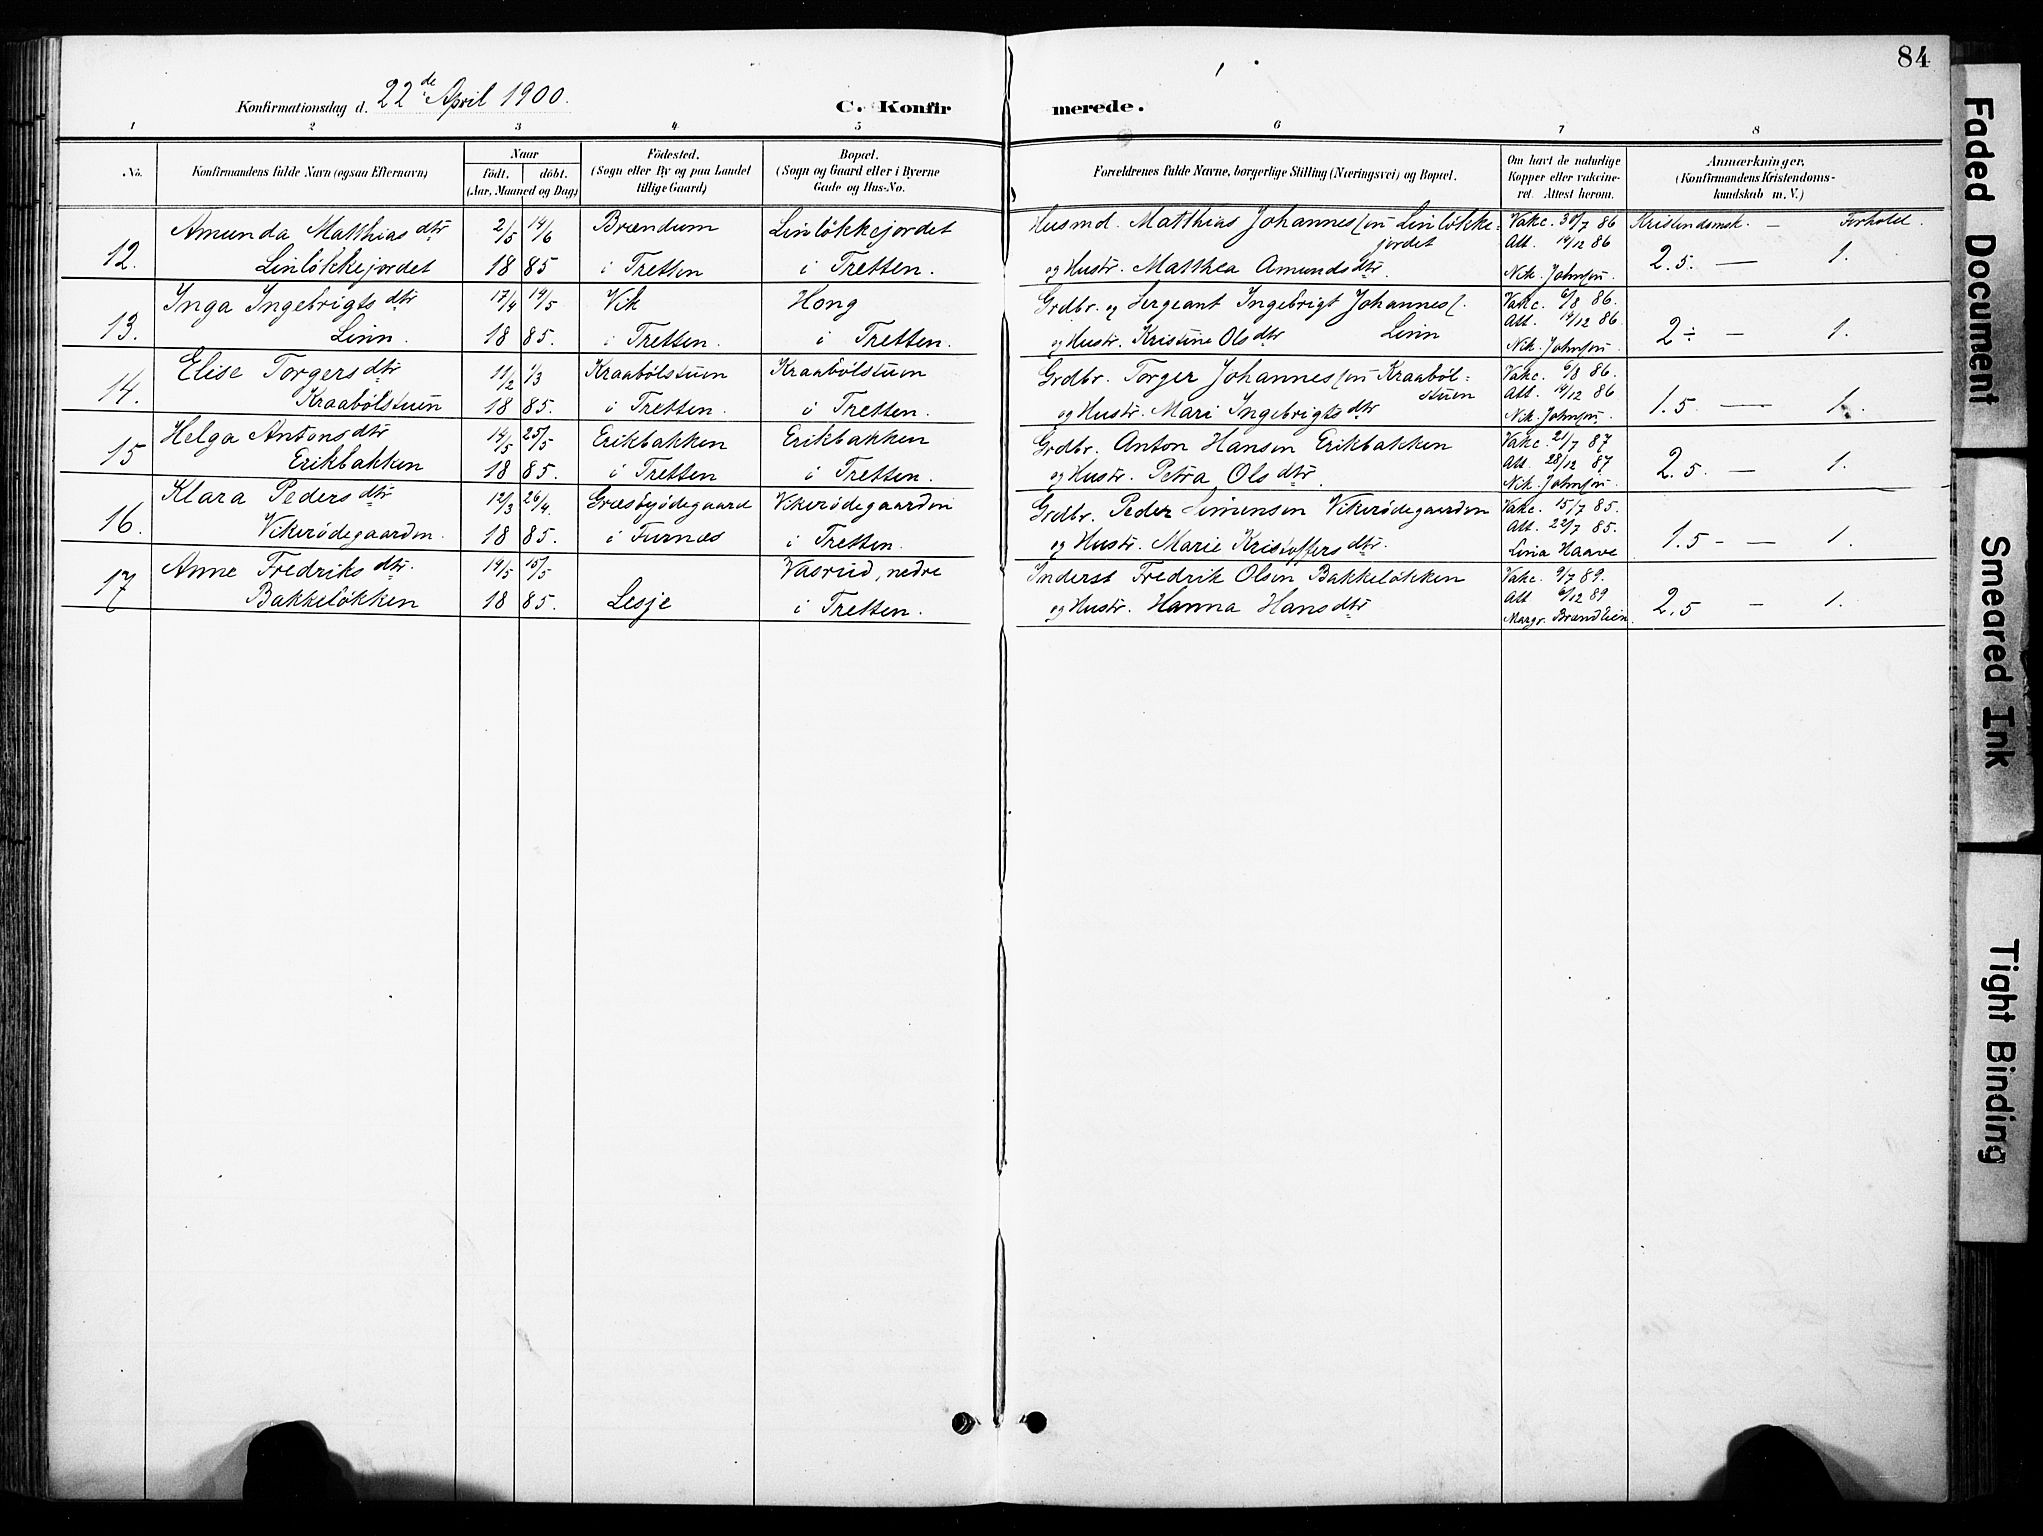 84
Konfirmationsdag d. 22de April 1900.
C. Konfirmerede.
1 2 3 4 5 6 7 8
No. Konfirmandens fulde Navn (ogsaa Efternavn) Naar födt. döbt. (Aar, Maaned og Dag) Födested. (Sogn eller By og paa Landet tillige Gaard) Bopæl. (Sogn og Gaard eller i Byerne Gade og Hus-No. Forældrenes fulde Navne, borgerlige Stilling (Næringsvei) og Bopæl. Om havt de naturlige Kopper eller vakcineret. Attest herom. Anmærkninger, (Konfirmandens Kristendomskundskab m. V.)
Amunda Matthiasdtr 2/5 14/6 Brændum Linløkkejordet Husmd. Matthias Johannessen Linløkkejordet Vakc. 30/7 86 Kristendomsk. — Forhold.
12. Linløkkejordet 18 85 i Tretten i Tretten. og Hustr. Matthea Amundsdtr. Att. 14/12 86 Nik. Johnsen. 2.5. — 1.
Inga Ingebrigtsdtr 17/4 14/5 Vik Hong Grdbr. og Sergeant Ingebrigt Johanness. Vakc. 6/8 86.
13. Linn. 18 85. i Tretten. i Tretten. og Hustr. Kristine Olsdtr Linn Att. 14/12 86 Nik. Johnsen. 2÷ — 1.
Elise Torgersdtr 11/2 1/3 Kraabølstuen Kraabølstuen Grdbr. Torger Johannessen Kraabølstuen Vakc. 6/8 86.
14. Kraabølstuen 18 85. i Tretten. i Tretten. og Hustr. Mari Ingebrigtsdtr Att. 14/12 86 Nik. Johnsen. 1.5 — 1.
Helga Antonsdtr 14/5 25/5 Erikbakken Erikbakken Grdbr. Anton Hansen Erikbakken Vakc. 21/7 87
15 Erikbakken 18 85. i Tretten i Tretten. og Hustr. Petra Olsdtr. Att. 28/12 87. Nik. Johnsen. 2.5. — 1.
Klara Pedersdtr 12/3 26/4 Græsbyødegaard Vikerødegaarden Grdbr. Peder Simensen Vikerødegaarden Vakc. 15/7 85.
16. Vikerødegaarden. 18 85. i Furnæs i Tretten. og Hustr. Marie Kristoffersdtr. Att. 22/7 85. Lina Haave 1.5 - — 1.
Anne Fredriksdtr. 14/5 15/5 Vasrud, nedre Inderst Fredrik Olsen Bakkeløkken Vakc. 9/7 89.
17 Bakkeløkken 18 85. Lesje i Tretten. og Hustr. Hanna Hansdtr Att 6/12 89 Margr. Brændlien. 2.5 — 1.
Faded Document
Smeared Ink
Tight Binding